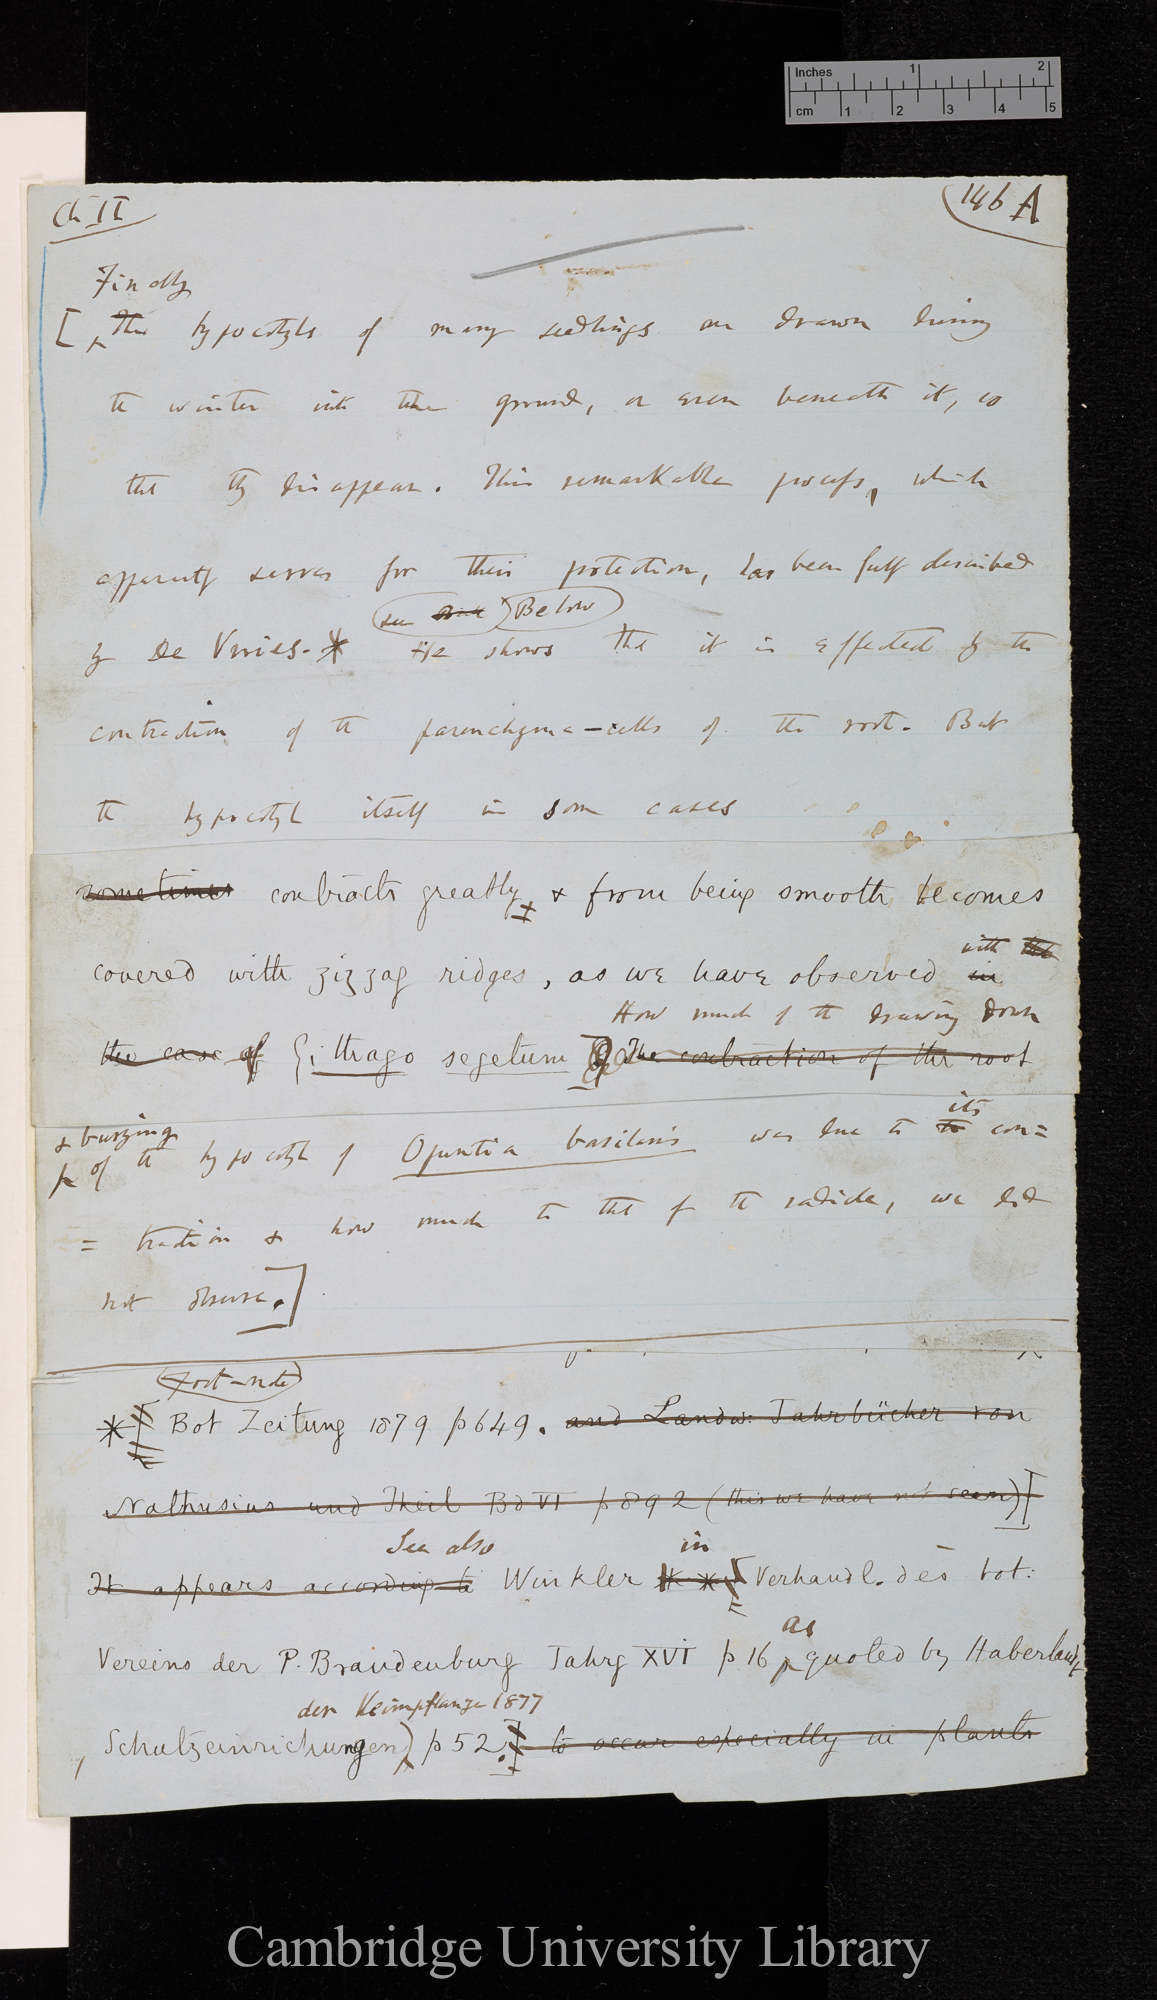 Inches 1 2
cm 1 2 3 4 5
Ch II
146 A
Finally
[ The hypocotyls of many seedlings are drawn during
the winter into the ground, or even beneath it, so
that they disappear. This remarkable process, which
apparently serves for their protection, has been fully described
see Below
by De Vries. * He shows that it is effected by the
contraction of the parenchyma-cells of the root. But
the hypocotyl itself in some cases
sometimes contracts greatly, & from being smooth becomes
with the
covered with zigzag ridges, as we have observed in
How much of the drawing down
the case of Githago segetum The contraction of the root
& burying its
of the hypocotyl of Opuntia basilaris was due to the con=
= traction & how much to that of the radicle, we did
not observe.]
Foot-note
* [ Bot Zeitung 1879 p 649. and Landw: Jahrbücher von
Nathusius und Theil Bd VI p 892 (this we have not seen)]
See also in
It appears according to Winkler * * Verhandl. des bot:
as
Vereins der P. Brandenburg Jahrg XVI p 16 quoted by Haberlandt
der Keimpflanze 1877
, Schutzeinrichungen) p 52.] to occur especially in plants
Cambridge University Library